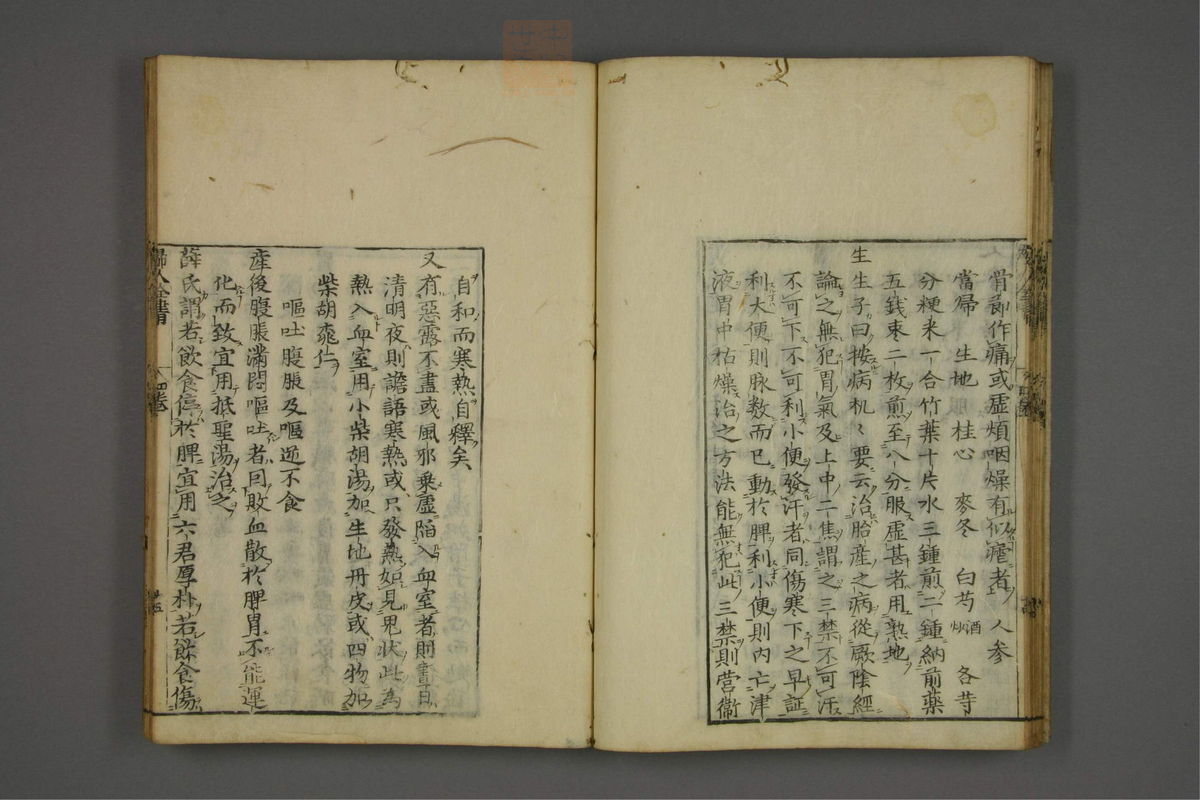 骨節作痛或虛煩咽燥有似瘧者人參
當歸 生地 桂心 麥冬 白芍酒炒 各等
分粳米一合竹葉十片水三鍾煎二鍾納前藥
五錢棗二枚煎至八分服虛甚者用熟地
生生子曰按病机〻要云治胎產之病從厥陰經
論之無犯胃氣及上中二焦謂之三禁不可汗
不可下不可利小便發汗者同傷寒下之早証
利大便則脉数而已動於脾利小便則内亡津
液胃中枯燥治之方法能無犯此三禁則营衛
自和而寒熱自釋矣
又有惡露不盡或風邪乗虛陷入血室者則晝日
清明夜則譫語寒熱或只發熱如見鬼狀此為
熱入血室用小柴胡湯加生地丹皮或四物加
柴胡桃仁
嘔吐腹脹及嘔逆不食
產後腹脹滿悶嘔吐者因敗血散於脾胃不能運
化而致宜用抵聖湯治之
薛氏謂若飲食停於脾宜用六君厚朴若飲食傷
婦人全書
四卷
廿五